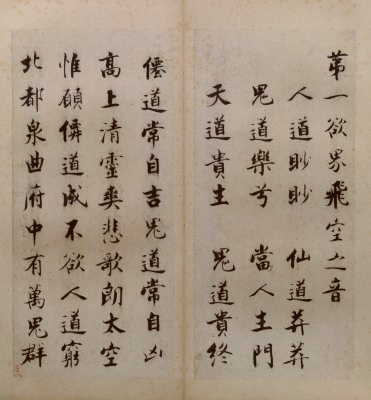 第一欲界飛空之音
人道眇眇 仙道莽莽
鬼道樂兮 當人生門
天道貴生 鬼道貴終
僊道常自吉鬼道常自凶
高上清靈爽悲歌朗太空
惟願僊道成不欲人道窮
北都泉曲府中有萬鬼群